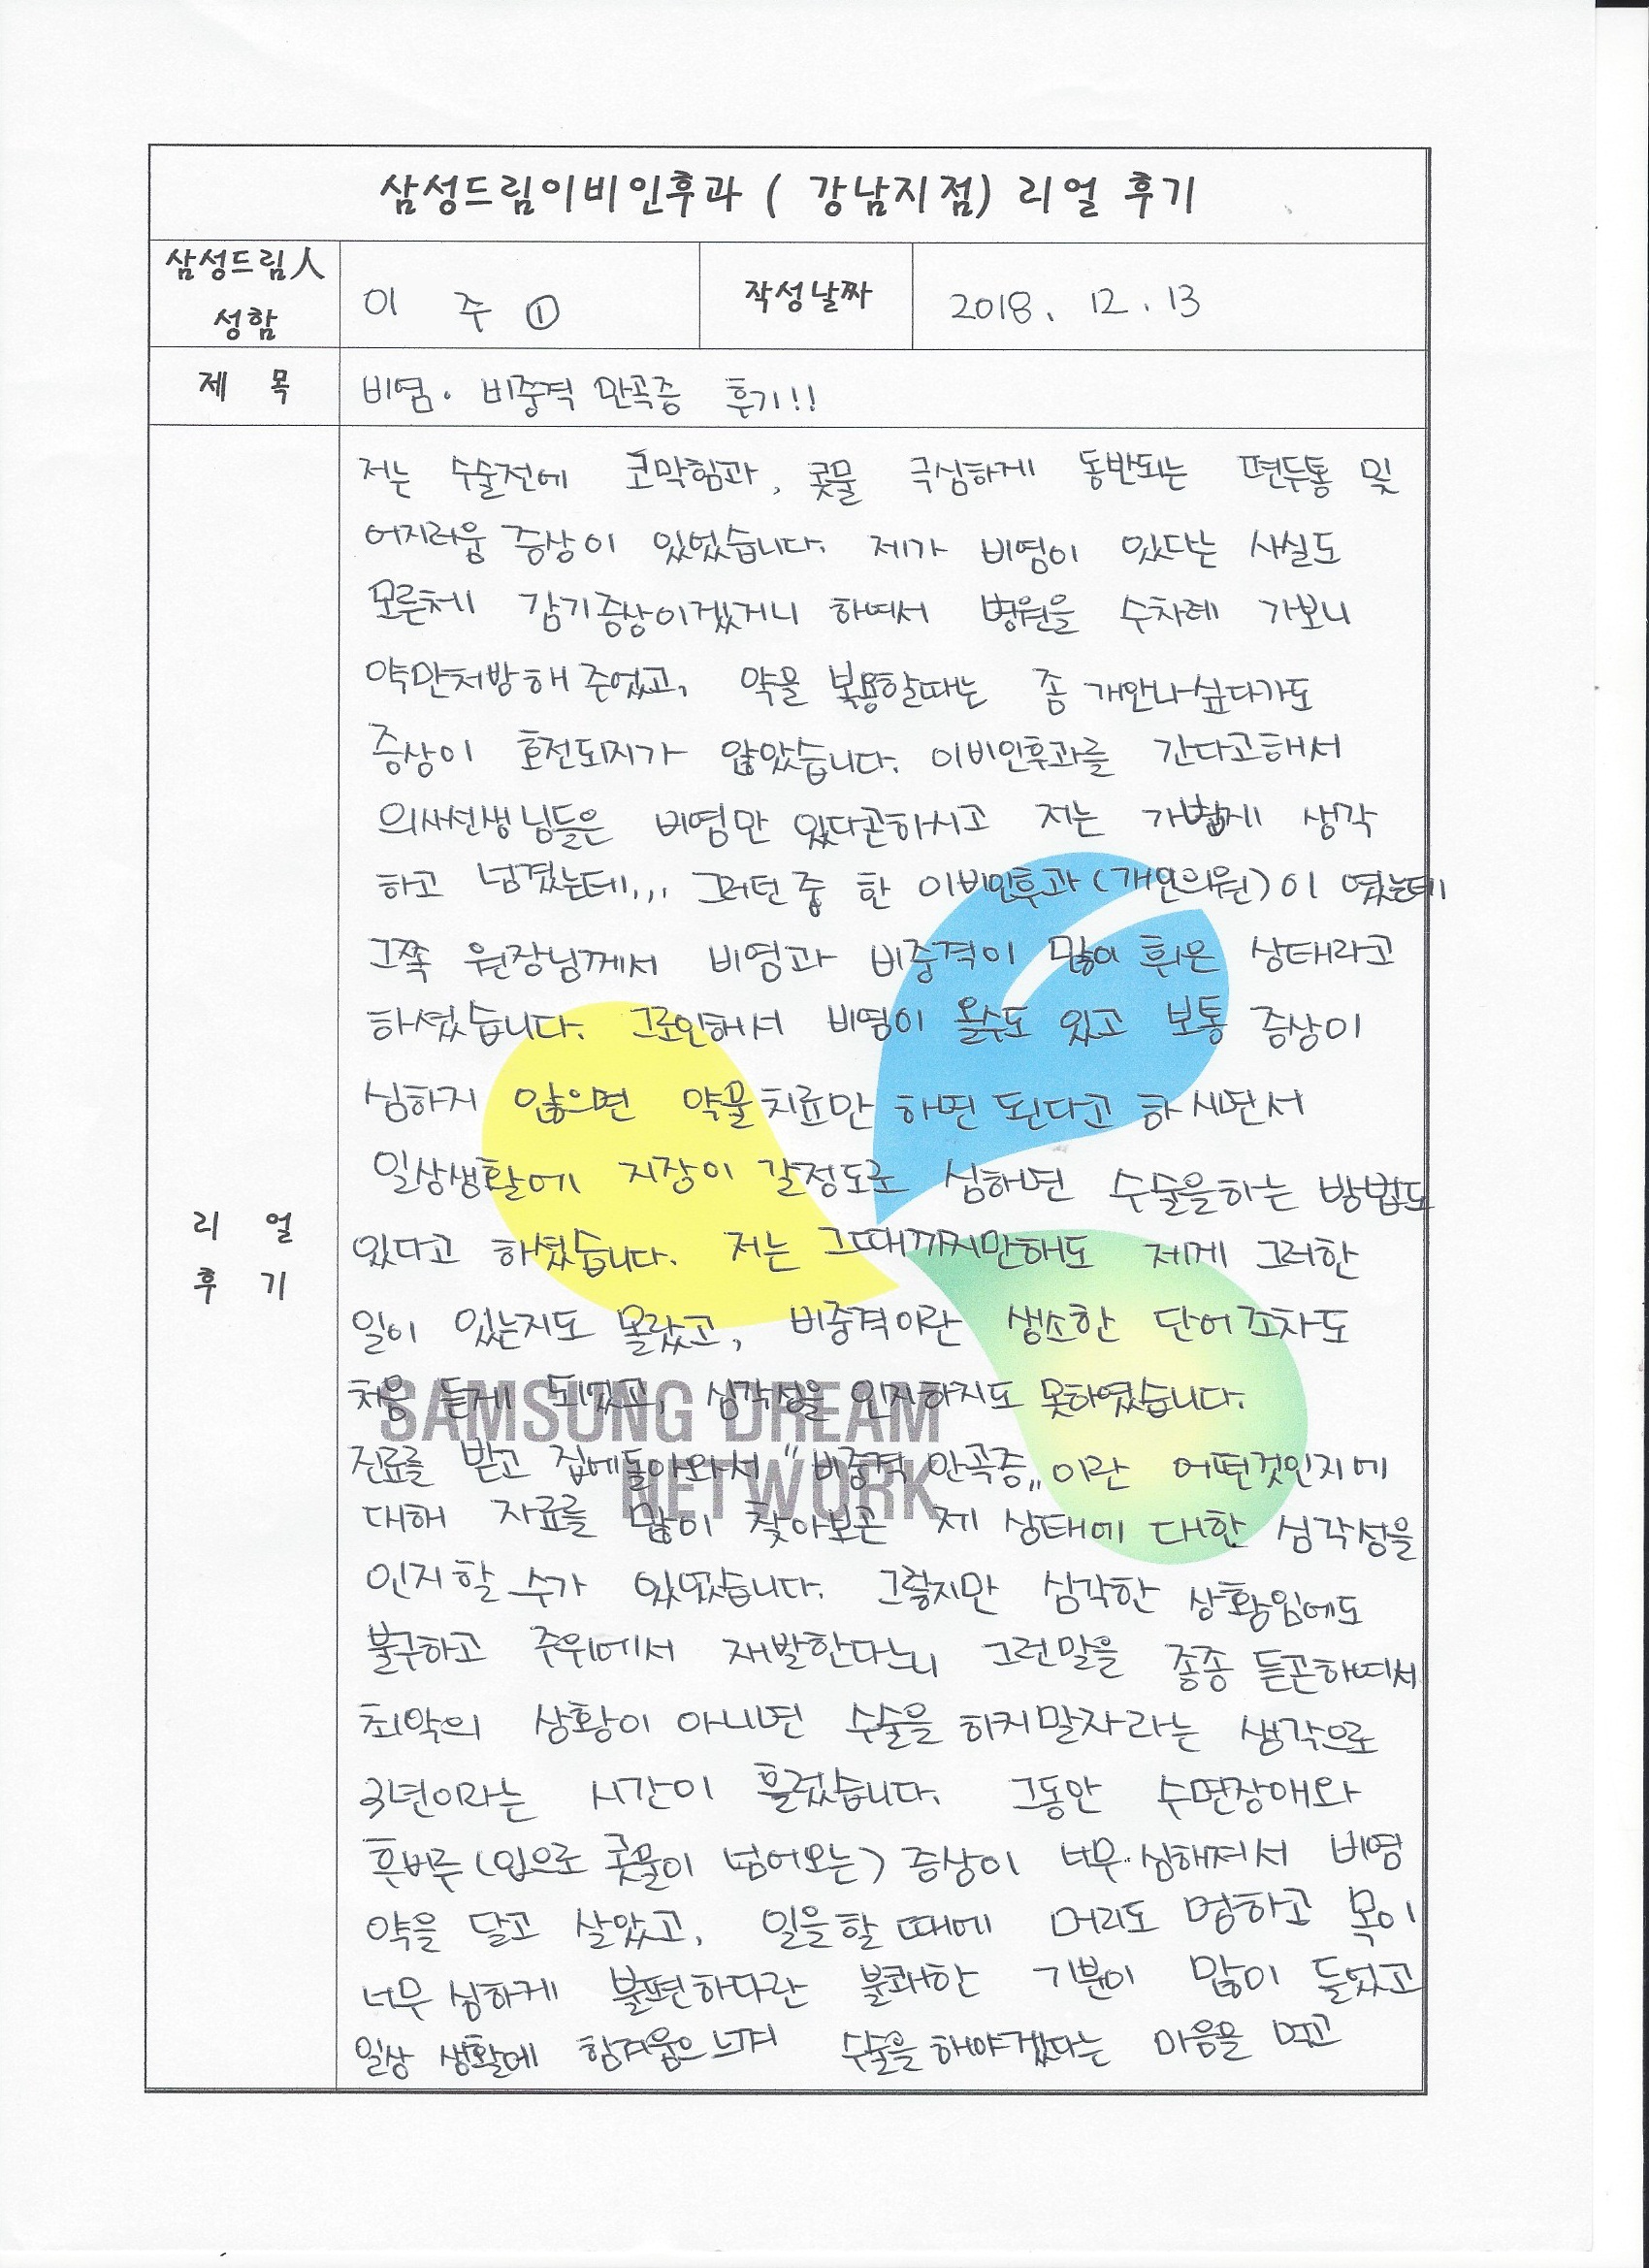 삼성드림이비인후과 ( 강남지점) 리얼 후기
삼성드림人 성함
이 주 ①
작성날짜
2018. 12. 13
제 목
비염. 비중격 만곡증 후기!!
리 얼 후 기
저는 수술전에 코막힘과, 콧물 극심하게 동반되는 편두통 및
어지러움 증상이 있었습니다. 제가 비염이 있다는 사실도
모른체 감기증상이겠거니 하여서 병원을 수차례 가보니
약만처방해 주었고, 약을 복용할때는 좀 개안나싶다가도
증상이 호전되지가 않았습니다. 이비인후과를 간다고해서
의사선생님들은 비염만 있다곤하시고 저는 가볍게 생각
하고 넘겼는데... 그러던 중 한 이비인후과(개인의원)이 였는데
그쪽 원장님께서 비염과 비중격이 많이 휘은 상태라고
하셨습니다. 그로인해서 비염이 올수도 있고 보통 증상이
심하지 않으면 약물치료만 하면 된다고 하시면서
일상생활에 지장이 갈정도로 심하면 수술을하는 방법도
있다고 하셨습니다. 저는 그때까지만해도 제게 그러한
일이 있는지도 몰랐고, 비중격이란 생소한 단어조차도
처음 듣게 되었고, 심각성을 인지하지도 못하였습니다.
진료를 받고 집에돌아와서 "비중격 만곡증"이란 어떤것인지에
대해 자료를 많이 찾아보곤 제 상태에 대한 심각성을
인지할 수가 있었습니다. 그렇지만 심각한 상황임에도
불구하고 주위에서 재발한다느니 그런말을 종종 듣곤하여서
최악의 상황이 아니면 수술을 하지말자라는 생각으로
3년이라는 시간이 흘렀습니다. 그동안 수면장애와
후비루(입으로 콧물이 넘어오는) 증상이 너무 심해져서 비염
약을 달고 살았고, 일을할 때에 머리도 멍하고 목이
너무 심하게 불편하다란 불쾌한 기분이 많이 들었고
일상 생활에 힘겨움으느껴 수술을 해야겠다는 마음을 먹고
SAMSUNG DREAM
NETWORK